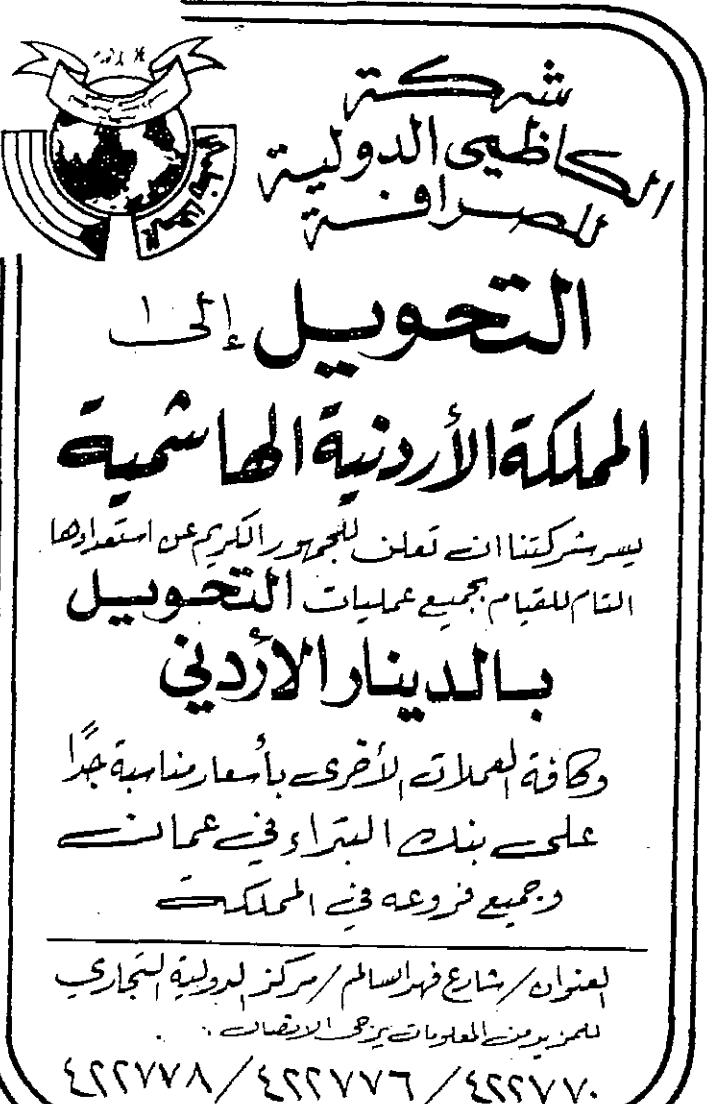 شركة
الكاظمي الدولية
للصرافة
التحويل إلى
المملكة الأردنية الهاشمية
يسر شركتنا ان تعلن للجمهور الكريم عن استعدادها
التام للقيام بجميع عمليات التحويل
بالدينار الأردني
وكافة العملات الأخرى بأسعار مناسبة جدًا
على بنك البتراء في عمان
وجميع فروعه في المملكة
العنوان / شارع فهد السالم / مركز الدولية التجاري
للمزيد من المعلومات يرجى الاتصال :
٤٢٢٧٧٠ / ٤٢٢٧٧٦ / ٤٢٢٧٧٨